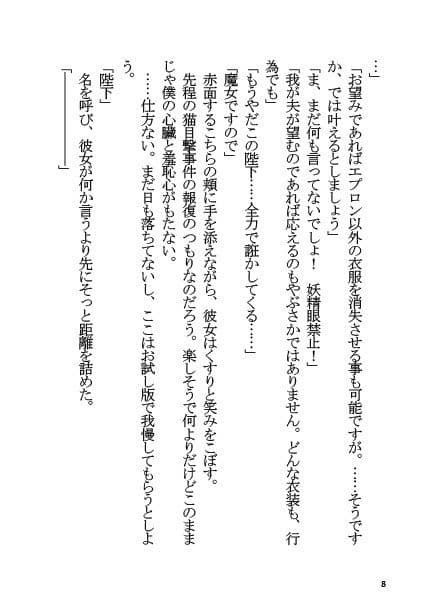 …」
「お望みであればエプロン以外の衣服を消失させる事も可能ですが。……そうです
か、では叶えるとしましょう」
「ま、まだ何も言ってないでしょ！　妖精眼禁止！」
「我が夫が望むのであれば応えるのもやぶさかではありません。どんな衣装も、行
為でも」
「もうやだこの陛下……全力で誑かしてくる……」
「魔女ですので」
　赤面するこちらの頬に手を添えながら、彼女はくすりと笑みをこぼす。
　先程の猫目撃事件の報復のつもりなのだろう。楽しそうで何よりだけどこのまま
じゃ僕の心臓と羞恥心がもたない。
　……仕方ない。まだ日も落ちてないし、ここはお試し版で我慢してもらうとしよ
う。
「陛下」
　名を呼び、彼女が何か言うより先にそっと距離を詰めた。
「――――――」
8